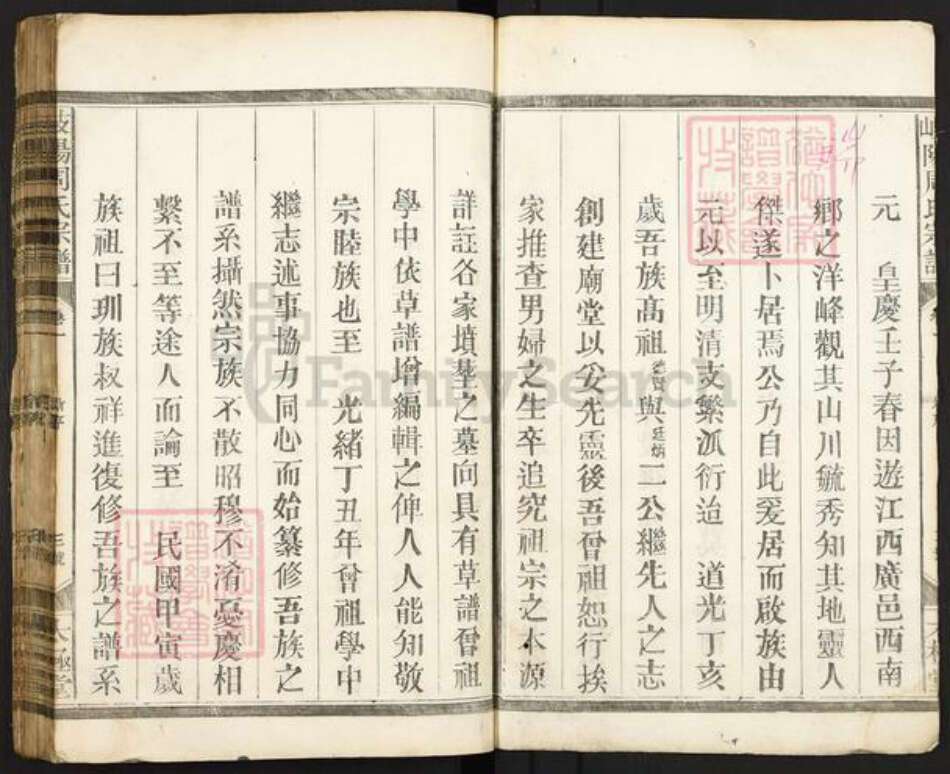 元　皇慶壬子春因遊江西廣邑西南
鄉之洋峰觀其山川毓秀知其地靈人
傑遂卜居焉公乃自此爰居而啟族由
元以至明清支繁派衍迨　道光丁亥
歲吾族高祖與廷炳二公繼先人之志
創建廟堂以妥先靈後吾曾祖恕行挨
家推查男婦之生卒追究祖宗之本源
詳註各家墳塋之墓向具有草譜曾祖
學中依草譜增編輯之俾人人能知敬
宗睦族也至　光緒丁丑年曾祖學中
繼志述事協力同心而始纂修吾族之
譜系攝然宗族不散昭穆不淆憂慶相
繫不至等途人而論至　民國甲寅歲
族祖曰玔族叔祥進復修吾族之譜系
岐陽周氏宗譜
卷一
FamilySearch